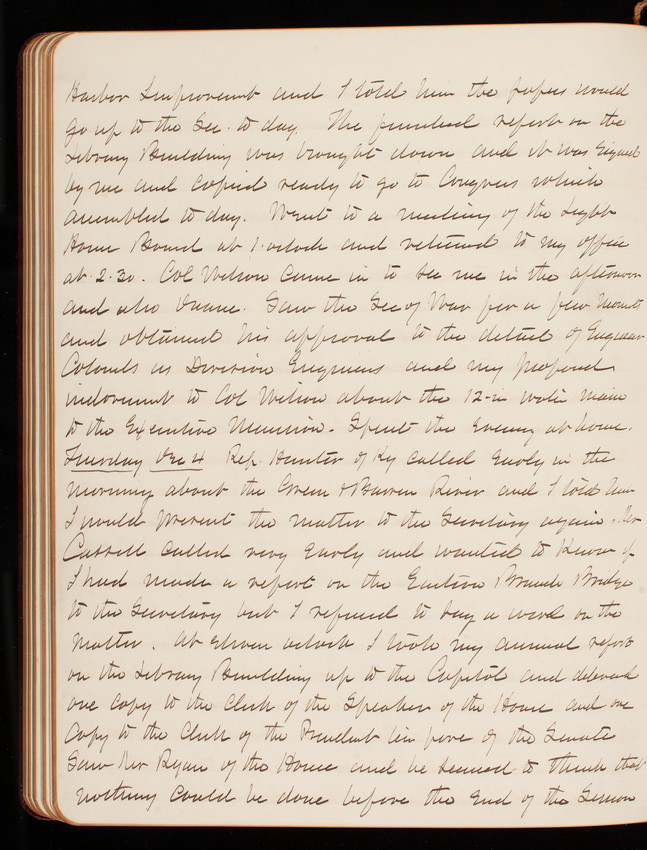 Harbor Improvement and I told him the papers would
go up to the Sec. to day. The printed report on the
Library Building was brought down and it was signed
by me and copied ready to go to Congress which
assembled to day. Went to a meeting of the Light
House Board at 1 oclock and returned to my office
at 2.30. Col Wilson came in to see me in the afternoon
and also Duane. Saw the Sec of War for a few moments
and obtained his approval to the detail of Engineer
Colonels as Division Engineers and my proposed
indorsement to Col Wilson about the 12-in water main
to the Executive Mansion. Spent the evening at home.
Tuesday Dec 4 Rep. Hunter of Ky called early in the
morning about the Green & Barren River and I told him
I would present the matter to the Secretary again. Mr
Cassell called very early and wanted to know if
I had made a report on the Eastern Branch Bridge
to the Secretary but I refused to say a word on the
matter. At eleven oclock I took my annual report
on the Library Building up to the Capitol and delivered
one copy to the Clerk of the Speaker of the House and one
copy to the Clerk of the President tem pore of the Senate
Saw Mr Ryan of the House and he seemed to think that
nothing could be done before the end of the Session